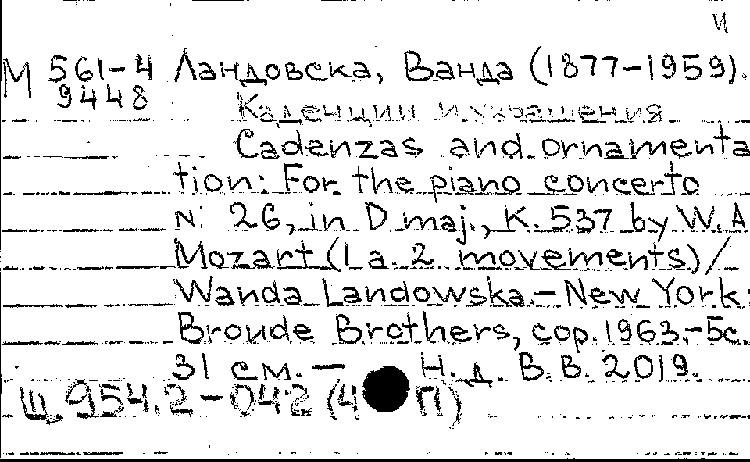 И
М 561-4 Ландовска, Ванда (1877-1959).
9448
Каденции и украшения
Cadenzas and ornamenta
tion: For the piano concerto
N 26, in D maj., K. 537 by W. A
Mozart (1 a. 2 movements) /
Wanda Landowska. - New York:
Broude Brothers, cop. 1963. - 5c.
31 см. - Н. д. В.В. 2019.
Щ 954.2-042 (4 П)